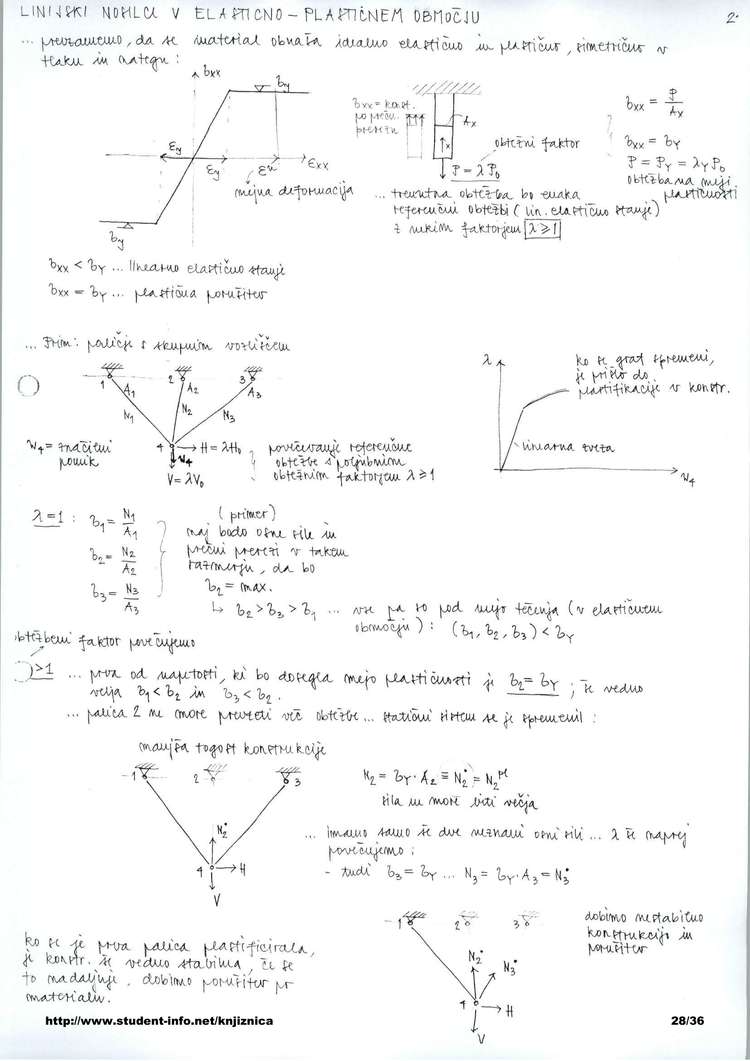 LINIJSKI NOSILCI V ELASTIČNO-PLASTIČNEM OBMOČJU
2.
... privzamemo, da se material obnaša idealno elastično in plastično, simetrično v
tlaku in nategu:
σxx
σy
εy
εy
εu
εxx
mejna deformacija
σy
σxx = konst.
po preč.
prerezu
Ax
x
obtežni faktor
P = λP0
σxx = P/Ax
σxx = σy
P = Py = λyP0
obtežba na meji
plastičnosti
... trenutna obtežba bo enaka
referenčni obtežbi (lin. elastično stanje)
z nekim faktorjem λ ≥ 1
σxx < σy ... linearno elastično stanje
σxx = σy ... plastična porušitev
... Prim: paličje s skupnim vozliščem
1 2 3
A1 A2 A3
N1 N2 N3
4 H = λH0
w4
V = λV0
w4 = značilni
pomik
povečevanje referenčne
obtežbe s poljubnim
obtežnim faktorjem λ ≥ 1
λ
ko se graf spremeni,
je prišlo do
plastifikacije v konstr.
linearna zveza
w4
λ = 1 : σ1 = N1/A1
σ2 = N2/A2
σ3 = N3/A3
(primer)
naj bodo osne sile in
prečni prerezi v takem
razmerju, da bo
σ2 = max.
↳ σ2 > σ3 > σ1 ... vse pa so pod mejo tečenja (v elastičnem
območju) : (σ1, σ2, σ3) < σy
obtežbeni faktor povečujemo
>1 ... prva od napetosti, ki bo dosegla mejo plastičnosti je σ2 = σy ; še vedno
velja σ1 < σ2 in σ3 < σ2.
... palica 2 ne more prevzeti več obtežbe ... statični sistem se je spremenil :
manjša togost konstrukcije
1 2 3
N2*
4 H
V
N2 = σy · A2 ≡ N2* = N2pl
sila ne more biti večja
... imamo samo še dve neznani osni sili ... λ še naprej
povečujemo :
- tudi σ3 = σy ... N3 = σy · A3 = N3*
1 2 3
N2* N3*
4 H
V
dobimo nestabilno
konstrukcijo in
porušitev
ko se je prva palica plastificirala,
je konstr. še vedno stabilna, če se
to nadaljuje, dobimo porušitev po
materialu.
http://www.student-info.net/knjiznica
28/36